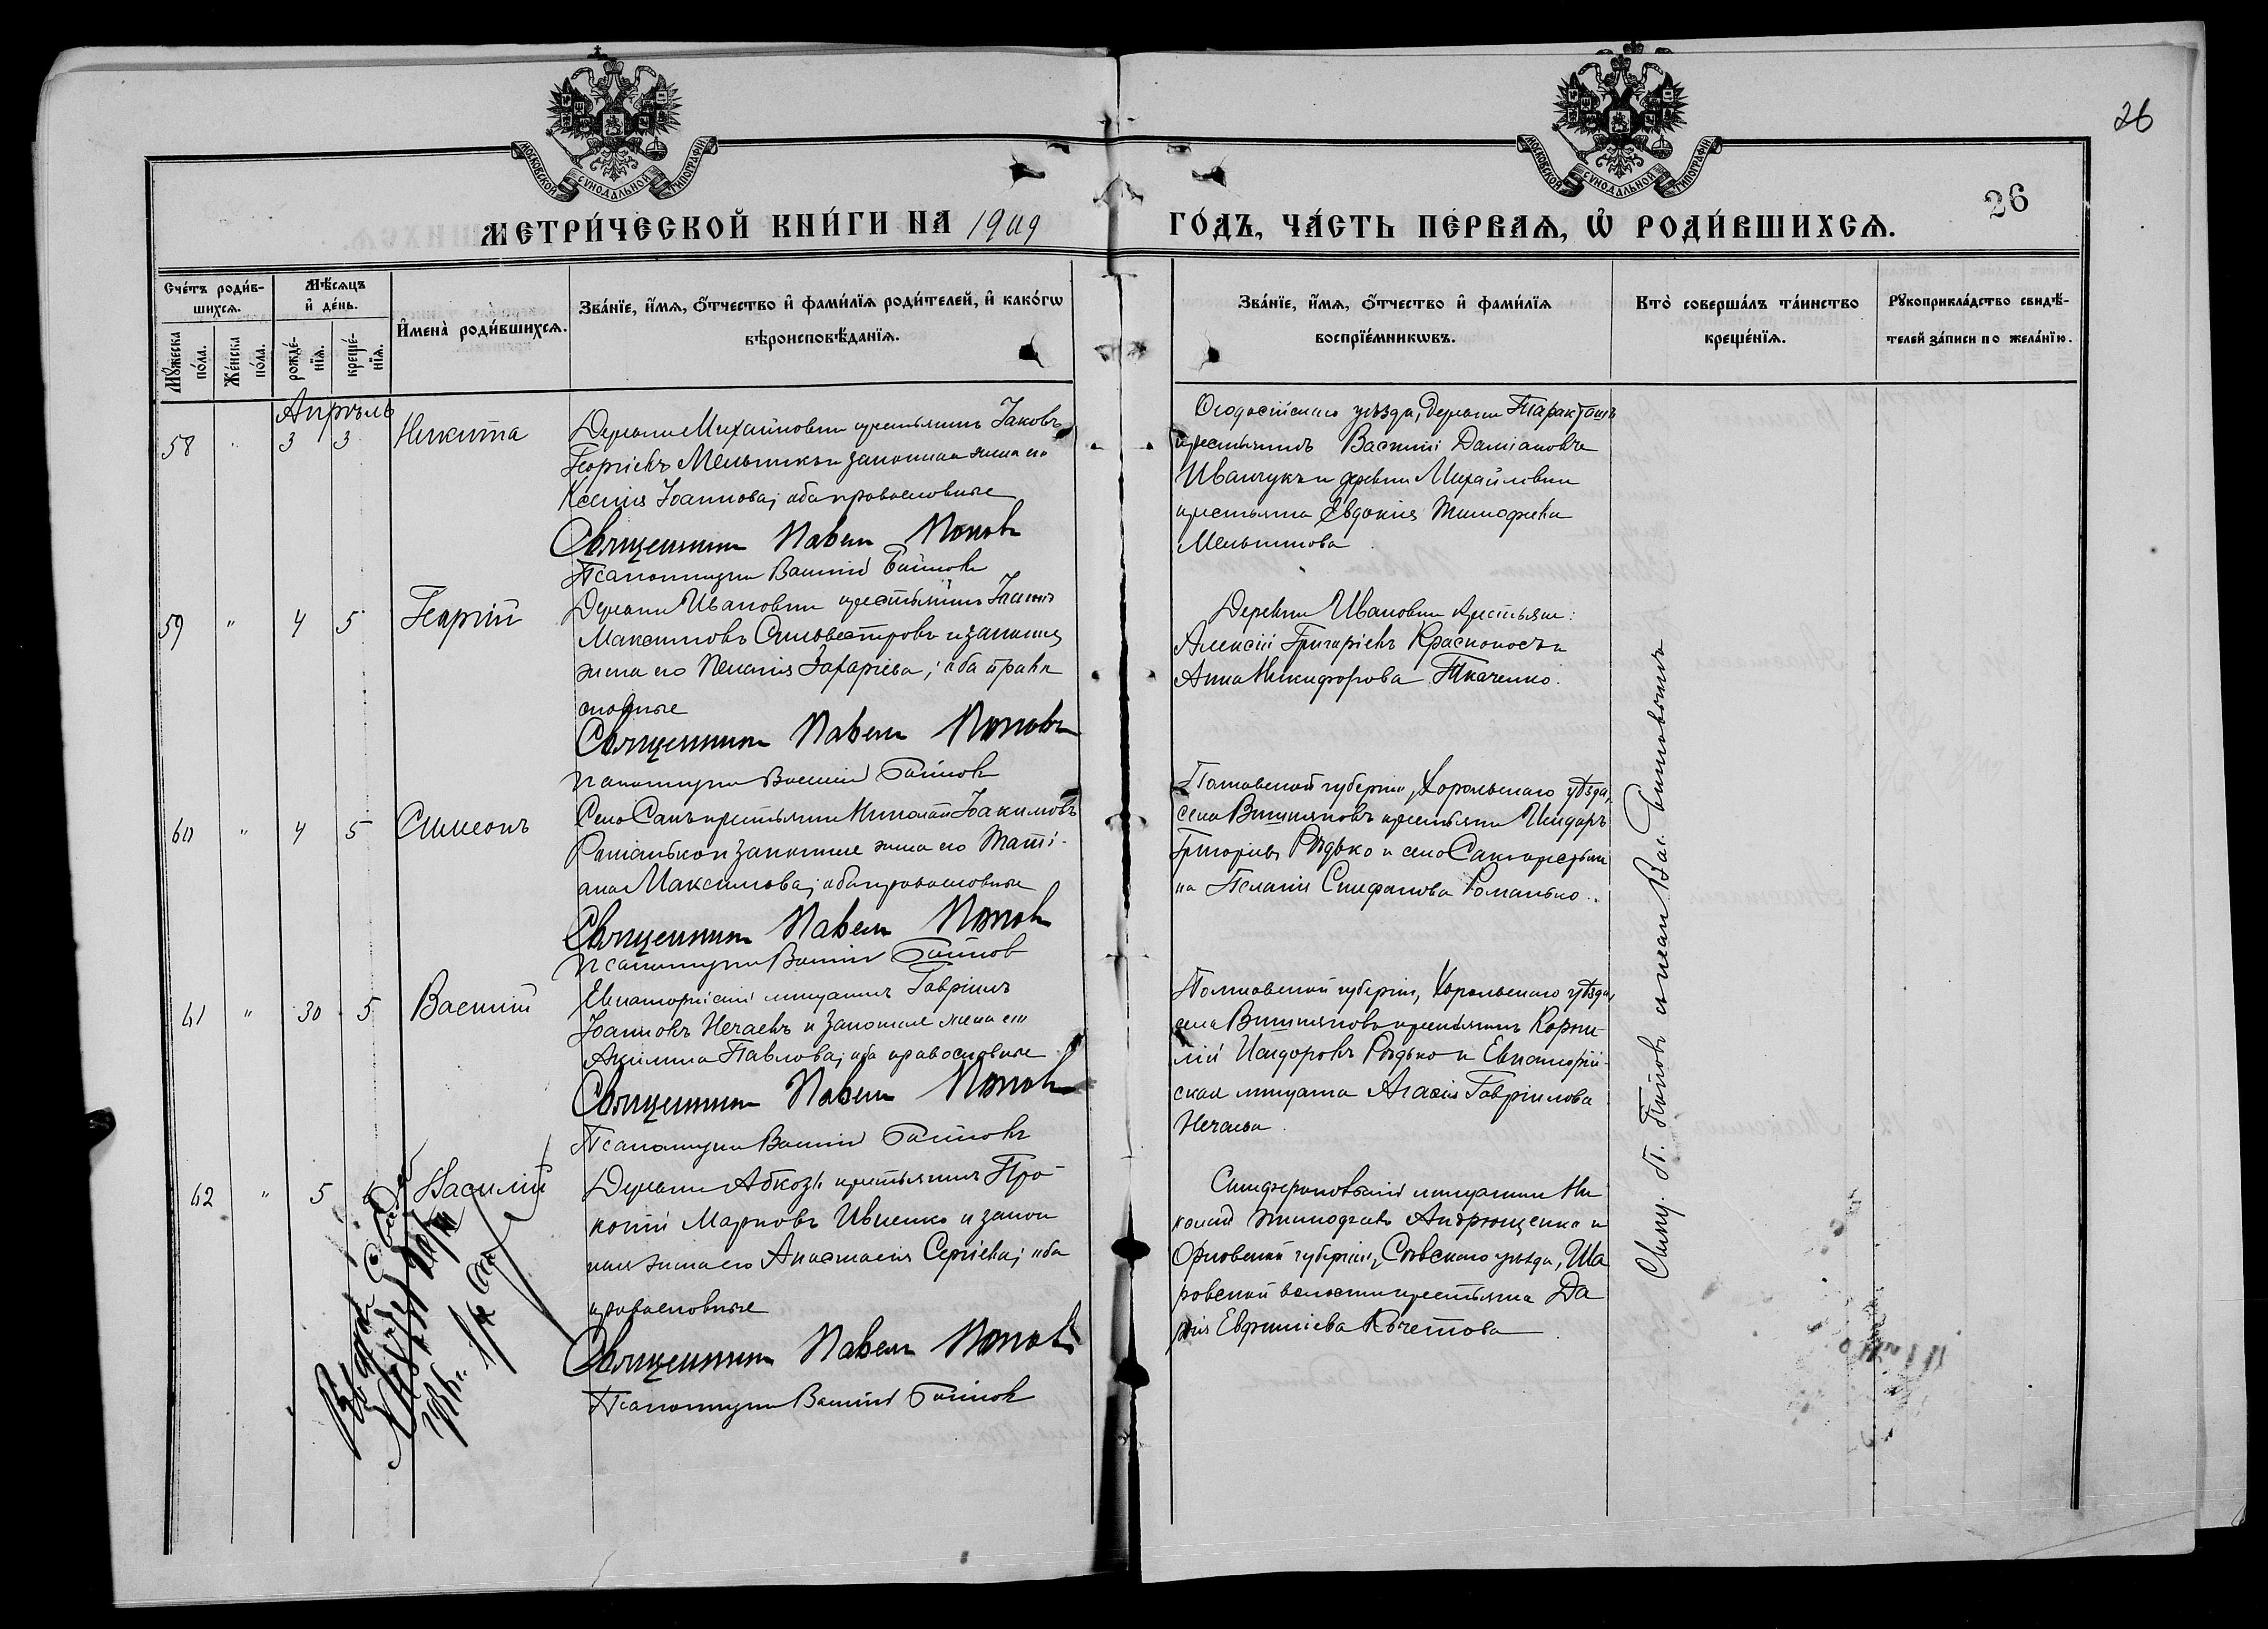 26
26
МОСКОВСКОЙ СѴНОДАЛЬНОЙ ТИПОГРАФІИ
МОСКОВСКОЙ СѴНОДАЛЬНОЙ ТИПОГРАФІИ
МЕТРИ́ЧЕСКОЙ КНИ́ГИ НА 1909
ГО́ДЪ, ЧА́СТЬ ПЕ́РВАѦ, Ѡ҆ РОДИ́ВШИХСѦ.
Сче́тъ роди́в-
шихсѧ.
Мꙋжеска по́ла.
Же́нска по́ла.
Мѣ́сѧцъ
и҆ де́нь.
рожде́-
нїѧ.
креще́-
нїѧ.
И҆мена̀ роди́вшихсѧ.
Зва́нїе, и҆́мѧ, ѻ҆́тчество и҆ фами́лїѧ роди́телей, и҆ како́гѡ
вѣроисповѣ́данїѧ.
Зва́нїе, и҆́мѧ, ѻ҆́тчество и҆ фами́лїѧ
воспрїе́мникѡвъ.
Кто̀ соверша́лъ та́инство
креще́нїѧ.
Рꙋкоприкла́дство свидѣ́-
телей за́писи по жела́нїю.
Апрѣль
58 3 3 Никита
Деревни Михайловки крестьянинъ Іаковъ
Георгіевъ Мельникъ и законная жена его
Ксенія Іоаннова; оба православные
Священникъ Павелъ Поповъ
Псаломщикъ Василій
Ѳеодосійскаго уѣзда, деревни Таракташъ
крестьянинъ Василій Даміановъ
Иванчукъ и деревни Михайловки
крестьянка Евдокія Тимофеева
Мельникова.
59 " 4 5 Георгій
Деревни Ивановки крестьянинъ Іаковъ
Максимовъ Сильвестровъ и законная
жена его Пелагія Захаріева; оба право
славные
Священникъ Павелъ Поповъ
Псаломщикъ Василій
Деревни Ивановки крестьяне:
Алексій Григоріевъ Красноносъ и
Анна Никифорова Ткаченко.
60 " 4 5 Симеонъ
Село Сакъ крестьянинъ Николай Іоакимовъ
Романько и законная жена его Таті-
ана Максимова; оба православные
Священникъ Павелъ Поповъ
Псаломщикъ Василій
Полтавской губерніи, Хорольскаго уѣзда,
села Вишняковъ крестьянинъ Исидоръ
Григорьевъ Рѣдько и село Сакъ крестьян
ка Пелагія Стефанова Романько.
61 " 30 5 Василій
Евпаторійскій мещанинъ Гавріилъ
Іоанновъ Нечаевъ и законная жена его
Акилина Павлова; оба православные
Священникъ Павелъ Поповъ
Псаломщикъ Василій
Полтавской губерніи, Хорольскаго уѣзда,
села Вишняковъ крестьянинъ Корни-
лій Исидоровъ Рѣдько и Евпаторій-
ская мещанка Агафія Гавріилова
Нечаева.
62 " 5 Василій
Деревни Абкозы крестьянинъ Про-
копій Марковъ Ивченко и закон
ная жена его Анастасія Сергіева; оба
православные
Священникъ Павелъ Поповъ
Псаломщикъ Василій
Симферопольскій мещанинъ Ни
колай Тимофеевъ Андрющенко и
Орловской губерніи, Сѣвскаго уѣзда, Ша
ровской волости крестьянка Да
рія Евфиміева Кочетова
Свящ. П. Поповъ съ псал. Вас.